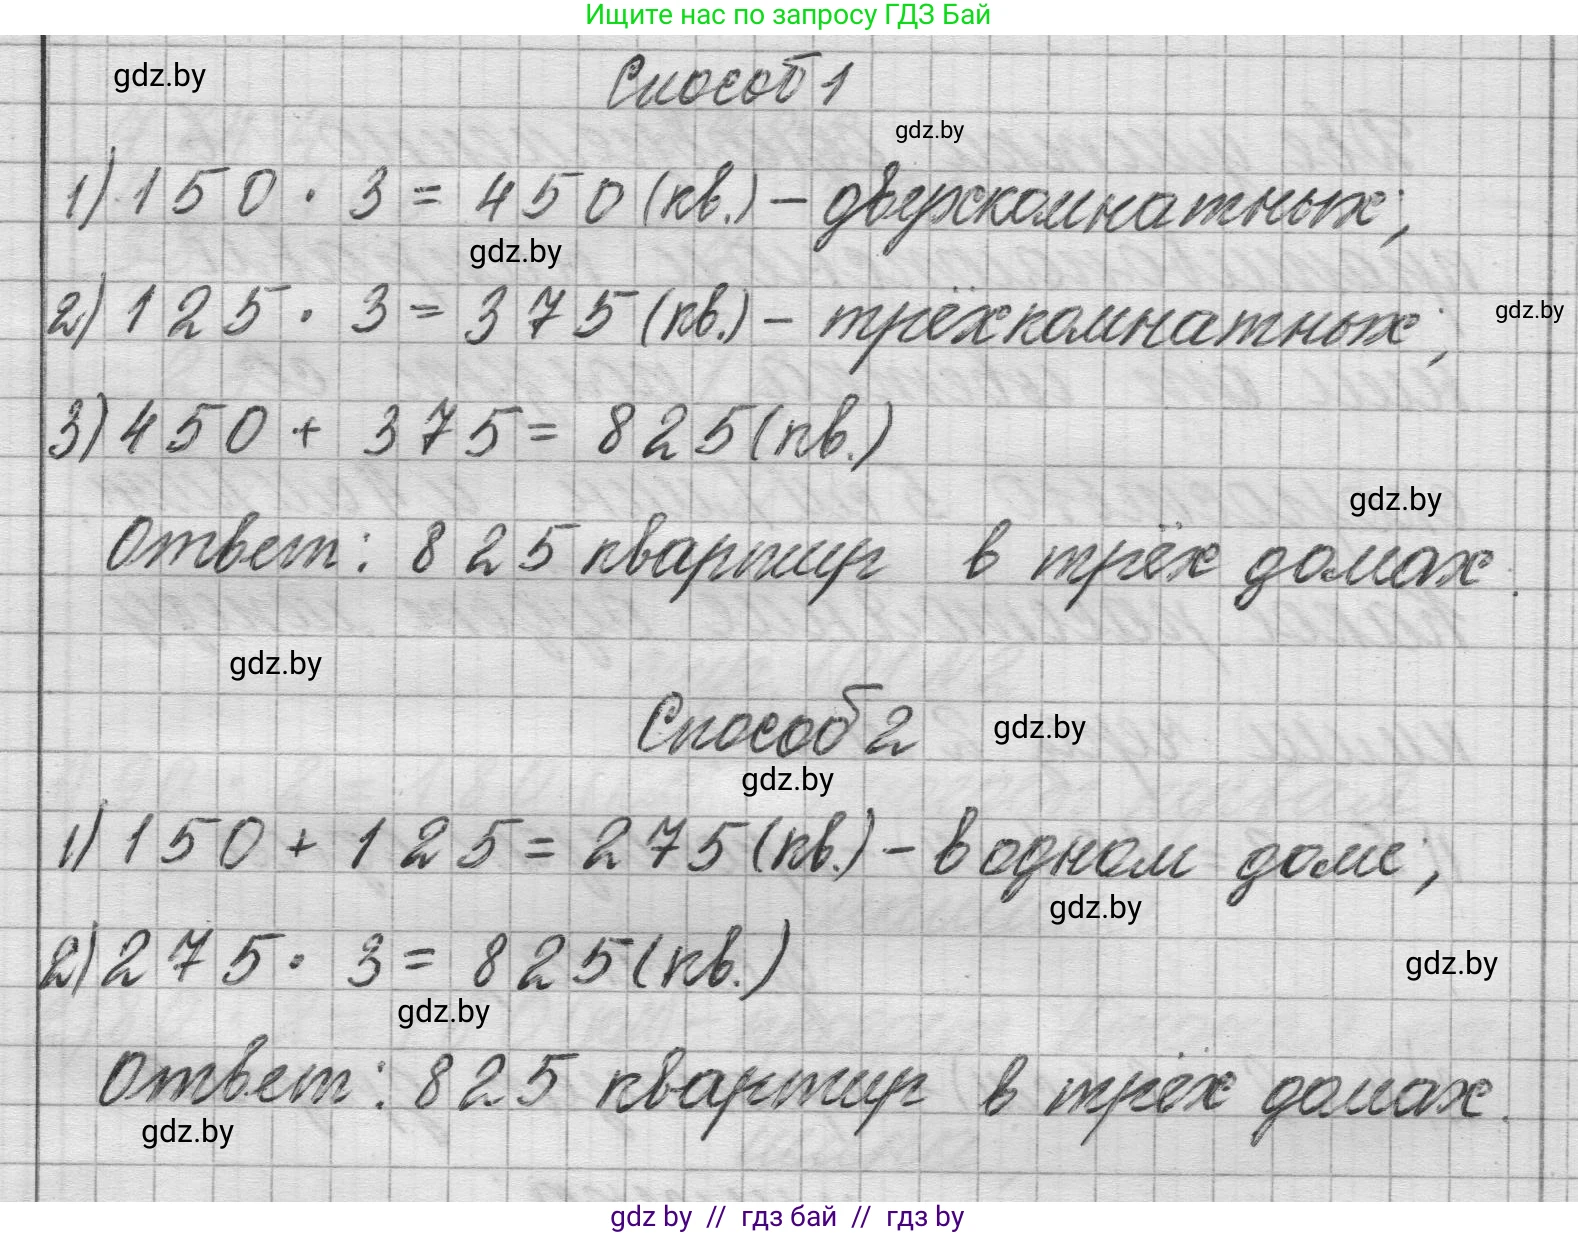 Ищите нас по запросу ГДЗ Бай
gdz.by
Способ 1
gdz.by
1) 150 · 3 = 450 (кв.) – двухкомнатных;
gdz.by
2) 125 · 3 = 375 (кв.) – трёхкомнатных;
gdz.by
3) 450 + 375 = 825 (кв.)
gdz.by
Ответ: 825 квартир в трёх домах.
gdz.by
Способ 2
gdz.by
gdz.by
1) 150 + 125 = 275 (кв.) – в одном доме;
gdz.by
2) 275 · 3 = 825 (кв.)
gdz.by
gdz.by
Ответ: 825 квартир в трёх домах.
gdz.by
gdz by // гдз бай // гдз by